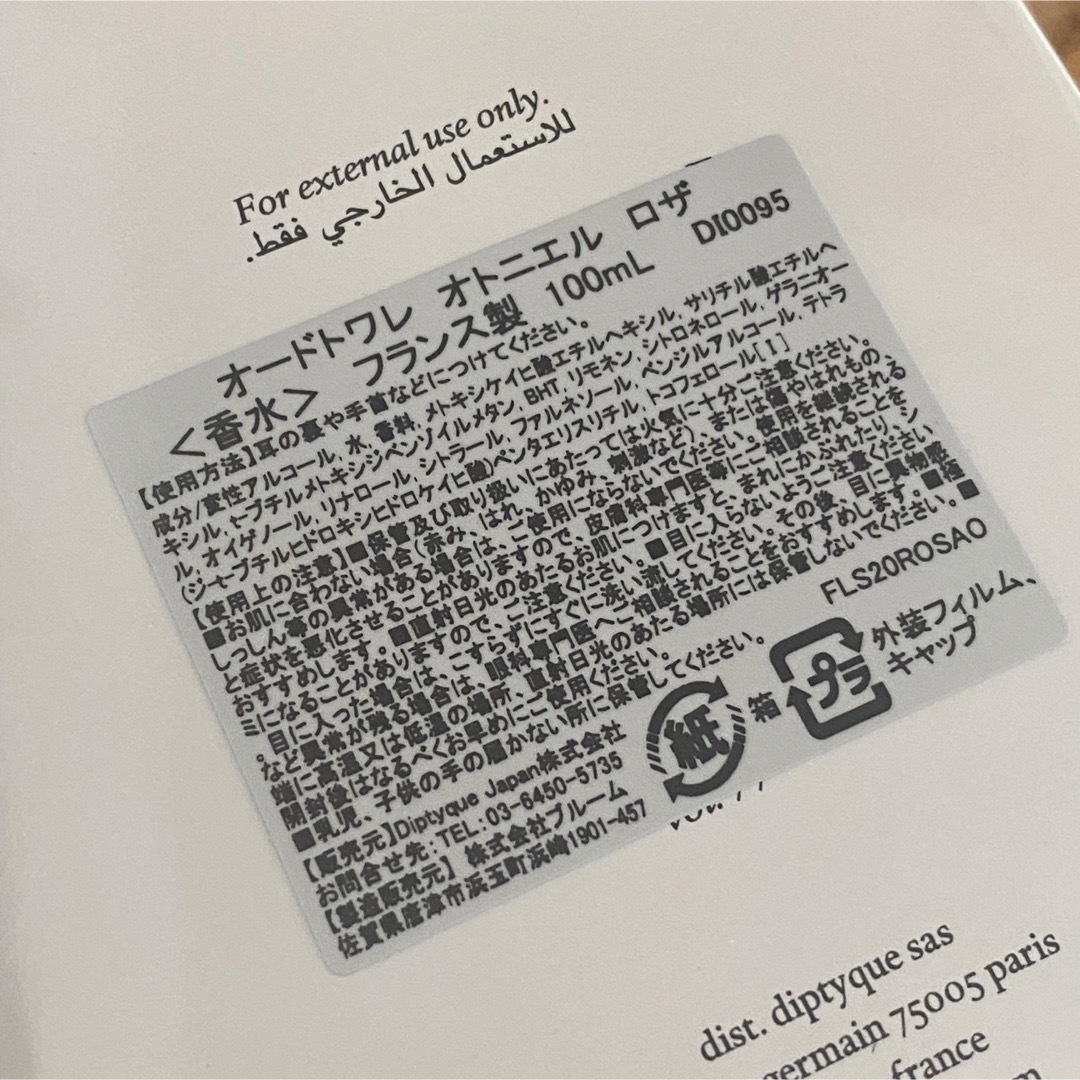 For external use only.
للاستعمال الخارجي فقط.
オードトワレ オトニエル ロザ
<香水> フランス製 100mL DI0095
【使用方法】耳の裏や手首などにつけてください。
成分/変性アルコール, 水, 香料, メトキシケイヒ酸エチルヘキシル, サリチル酸エチルヘ
キシル, t-ブチルメトキシジベンゾイルメタン, BHT, リモネン, シトロネロール, ゲラニオー
ル, オイゲノール, リナロール, シトラール, ファルネソール, ベンジルアルコール, テトラ
(ジ-t-ブチルヒドロキシヒドロケイヒ酸)ペンタエリスリチル, トコフェロール[I]
【使用上の注意】■保管及び取り扱いにあたっては火気に十分ご注意ください。
■お肌に合わない場合(赤み、はれ、かゆみ、刺激など)、または傷やはれもの、
しっしん等の異常がある場合は、ご使用にならないでください。使用を継続される
と症状を悪化させることがありますので、皮膚科専門医等にご相談されることを
おすすめします。■直射日光のあたるお肌につけますと、まれにかぶれたり、シ
ミになることがありますので、ご注意ください。■目に入らないようご注意ください
。目に入った場合は、こすらずにすぐに洗い流してください。その後、目に異物感
など異常が残る場合は、眼科専門医へご相談されることをおすすめします。■極
端に高温又は低温の場所、直射日光のあたる場所には保管しないでください。■
開封後はなるべくお早めにご使用ください。
■乳児、子供の手の届かない所に保管してください。
FLS20ROSAO
【販売元】Diptyque Japan株式会社
お問合せ先:TEL:03-6450-5735
【製造販売元】株式会社ブルーム
佐賀県唐津市浜玉町浜崎1901-457
紙 箱
プラ 外装フィルム、
キャップ
dist. diptyque sas
germain 75005 paris
france